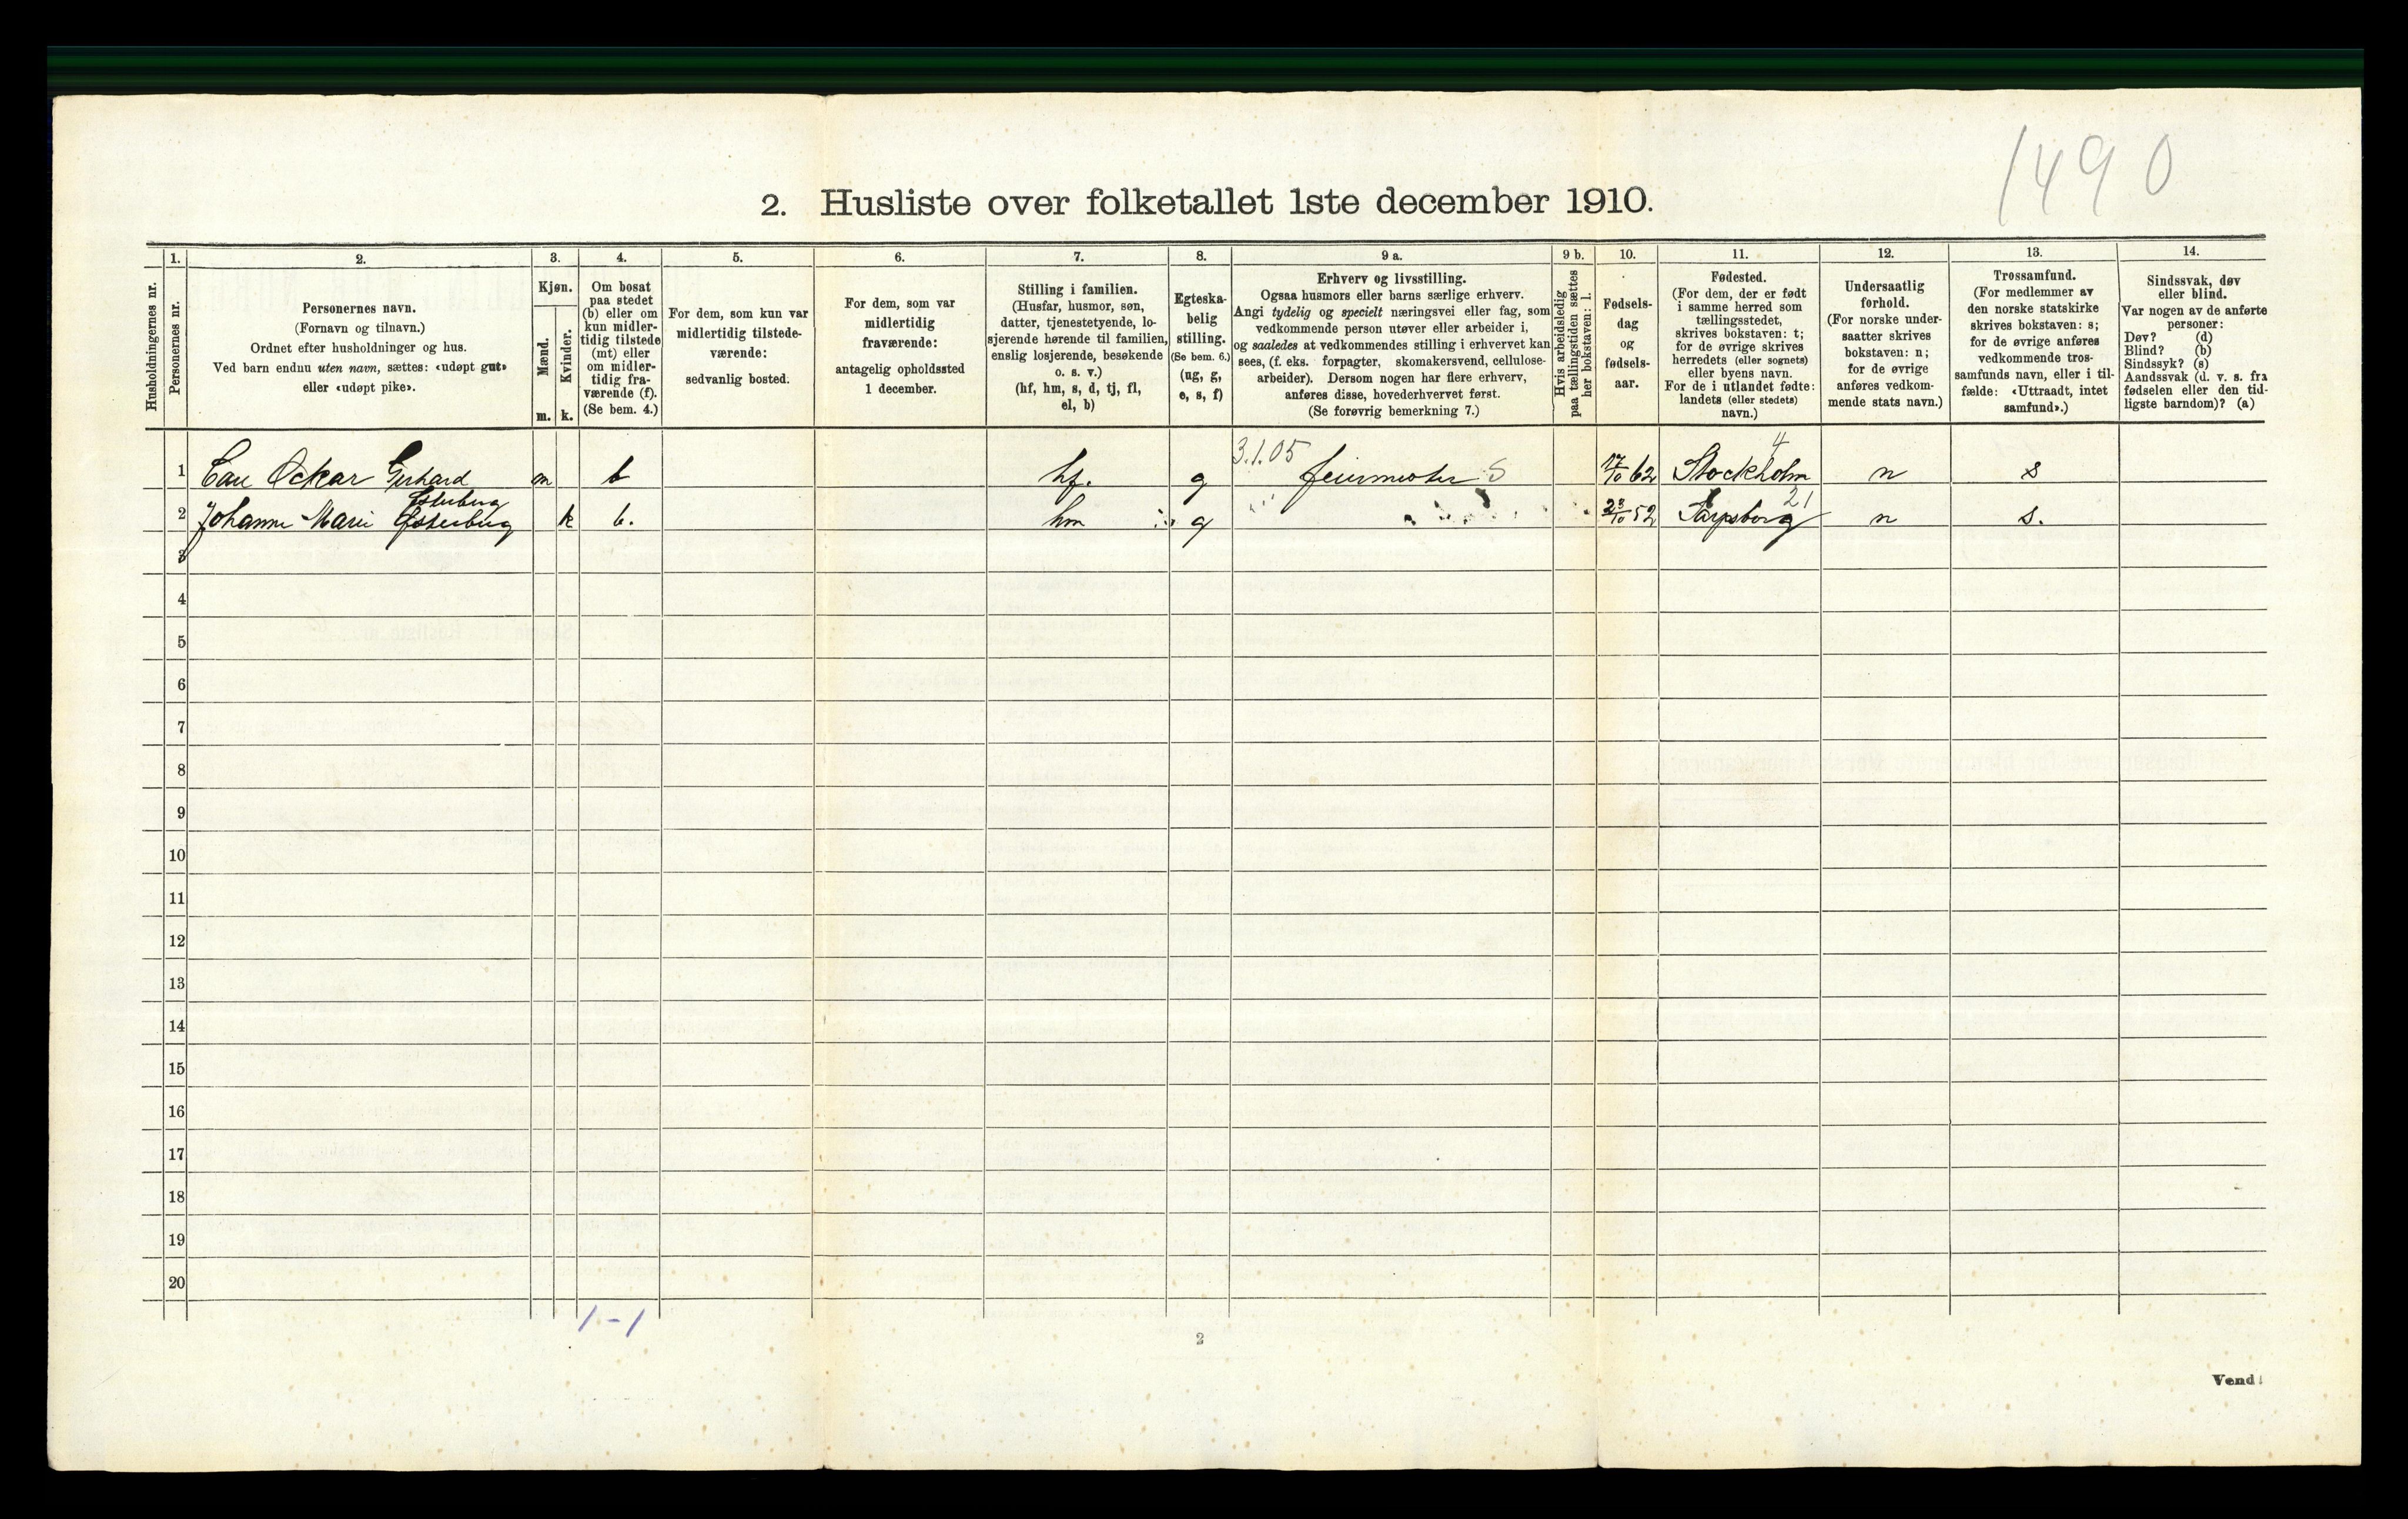 1490
2. Husliste over folketallet 1ste december 1910.
Husholdningernes nr.
1.
Personernes nr.
2.
Personernes navn.
(Fornavn og tilnavn.)
Ordnet efter husholdninger og hus.
Ved barn endnu uten navn, sættes: «udøpt gut»
eller «udøpt pike».
3.
Kjøn.
Mænd.
Kvinder.
m. k.
4.
Om bosat
paa stedet
(b) eller om
kun midler-
tidig tilstede
(mt) eller
om midler-
tidig fra-
værende (f).
(Se bem. 4.)
5.
For dem, som kun var
midlertidig tilstede-
værende:
sedvanlig bosted.
6.
For dem, som var
midlertidig
fraværende:
antagelig opholdssted
1 december.
7.
Stilling i familien.
(Husfar, husmor, søn,
datter, tjenestetyende, lo-
sjerende hørende til familien,
enslig losjerende, besøkende
o. s. v.)
(hf, hm, s, d, tj, fl,
el, b)
8.
Egteska-
belig
stilling.
(Se bem. 6.)
(ug, g,
e, s, f)
9 a.
Erhverv og livsstilling.
Ogsaa husmors eller barns særlige erhverv.
Angi tydelig og specielt næringsvei eller fag, som
vedkommende person utøver eller arbeider i,
og saaledes at vedkommendes stilling i erhvervet kan
sees, (f. eks. forpagter, skomakersvend, cellulose-
arbeider). Dersom nogen har flere erhverv,
anføres disse, hovederhvervet først.
(Se forøvrig bemerkning 7.)
9 b.
Hvis arbeidsledig
paa tællingstiden sættes
her bokstaven: l.
10.
Fødsels-
dag
og
fødsels-
aar.
11.
Fødested.
(For dem, der er født
i samme herred som
tællingsstedet,
skrives bokstaven: t;
for de øvrige skrives
herredets (eller sognets)
eller byens navn.
For de i utlandet fødte:
landets (eller stedets)
navn.)
12.
Undersaatlig
forhold.
(For norske under-
saatter skrives
bokstaven: n;
for de øvrige
anføres vedkom-
mende stats navn.)
13.
Trossamfund.
(For medlemmer av
den norske statskirke
skrives bokstaven: s;
for de øvrige anføres
vedkommende tros-
samfunds navn, eller i til-
fælde: «Uttraadt, intet
samfund».)
14.
Sindssvak, døv
eller blind.
Var nogen av de anførte
personer:
Døv? (d)
Blind? (b)
Sindssyk? (s)
Aandssvak (d. v. s. fra
fødselen eller den tid-
ligste barndom)? (a)
3.1.05 4
1 Carl Oskar Gerhard m b hf. g feiermester S 17/10 62 Stockholm n s
Østerberg 21
2 Johanne Marie Østerberg k b. hm g 23/10 52 Sarpsborg n s.
3
4
5
6
7
8
9
10
11
12
13
14
15
16
17
18
19
20
1-1
2
Vend!